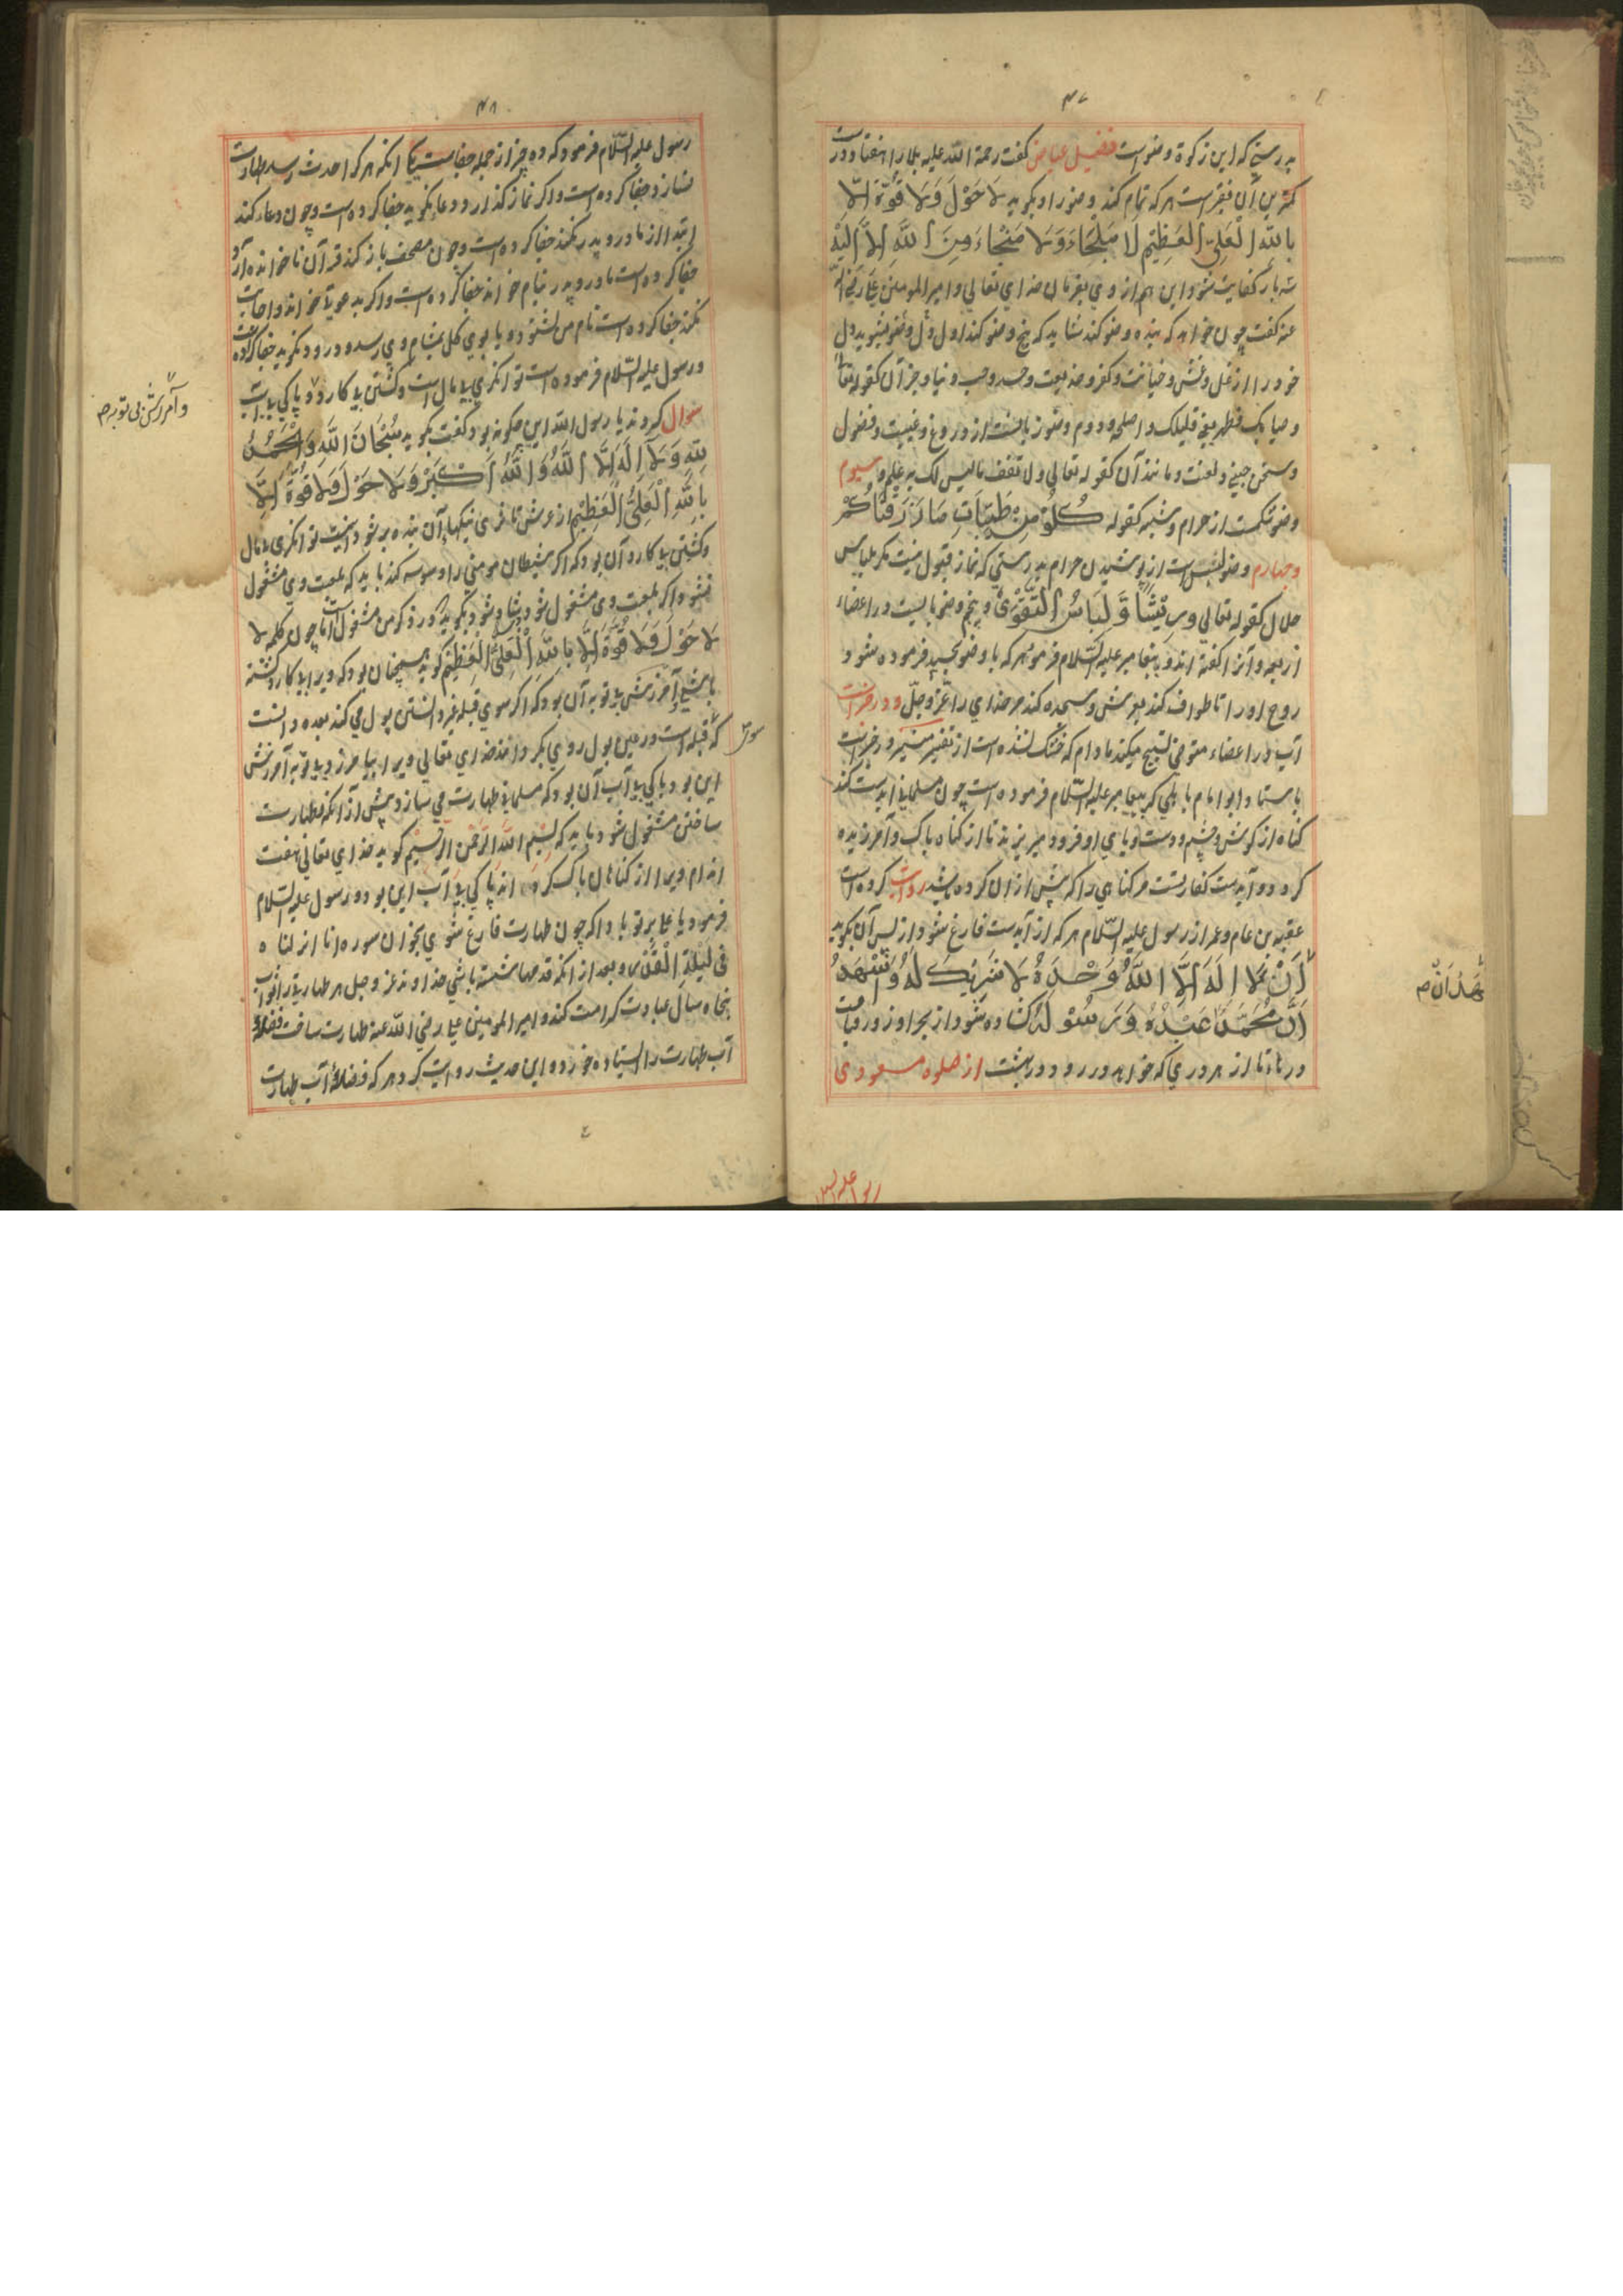 ۴۷
بدرستی که این زکوة وضو است فضیل عیاض گفت رحمة الله علیه بلا را هفتاد در
کمترین آن فقر است هرکه تمام کند وضو را و بگوید لَا حَوْلَ وَلَا قُوَّةَ اِلَّا
بِاللهِ الْعَلِیِّ الْعَظِیْمِ لَا مَلْجَاءَ وَلَا مَنْجَاءَ مِنَ اللهِ اِلَّا اِلَیْهِ
کفایت شود این هم از وی بفرمان خدای تعالی و امیر المومنین علی رضی الله
عنه گفت چون خواهد که بنده وضو کند شاید که پنج وضو کند اول دل وضو بشوید دل
خود را از غل و غش و خیانت و کفر و خدیعت و حسد و حب دنیا و جز آن کقوله تعالی
و ثیابک فطهر یعنی قلبک و اصلحه و دوم وضو زبانست از دروغ و غیبت و فضول
و سخن چینی و لعنت و مانند آن کقوله تعالی ولا تقف ما لیس لک به علم و سیوم
وضو شکمست از حرام و شبهه کقوله کُلُوْا مِنْ طَیِّبَاتِ مَا رَزَقْنَاکُمْ
و چهارم وضو لبس است از پوشیدن حرام بدرستی که نماز قبول نیست مگر بلباس
حلال کقوله تعالی وَرِیْشًا وَّلِبَاسُ التَّقْوٰی و پنجم وضو بآبست در اعضاء
اربعه و آنرا گفته اند و پیغامبر علیه السلام فرمود هرکه با وضو بخسپد فرموده شود
روح او را تا طواف کند بعرش و سجده کند مر خدای را عزّ و جلّ و در خبر است
آب در اعضاء متوضی تسبیح میکند مادام که خشک نشده است از تفسیر منیر و در خبر است
باسناد ابو امام باهلی که پیغامبر علیه السلام فرموده است چون مسلمانی آبدست کند
گناه از گوش و چشم و دست و پای او فرود میریزند تا از گناه پاک و آمرزیده
گردد و آبدست کفارتست مر گناهی را که پیش از آن کرده باشد روایت کرده است
عقبه بن عامر و عمر از رسول علیه السلام هرکه از آبدست فارغ شود و از پس آن بگوید
اَنْ لَّا اِلٰهَ اِلَّا اللهُ وَحْدَهُ لَا شَرِیْکَ لَهُ وَاَشْهَدُ
اَنَّ مُحَمَّدًا عَبْدُهُ وَرَسُوْلُهُ گشاده شود از بهر او روز قیامت
درها تا از هر دری که خواهد در رود در بهشت از صلوه مسعودی
اَشْهَدُ اَنْ صح
۴۸
رسول علیه السلام فرمود که ده چیز از جمله جفاست یکی آنکه هرکه را حدث رسد طهارت
نسازد جفا کرده است و اگر نماز گذارد و دعا نگوید جفا کرده است و چون دعا کند
ابتدا از مادر و پدر نکند جفا کرده است و چون مصحف باز کند قرآن ناخوانده
جفا کرده است مادر و پدر بنام خواند جفا کرده است و اگر بدعوت خوانند و اجابت
نکند جفا کرده است نام من شنود و یا بوی گل بمشام وی رسد و درود نگوید جفا کرده
و رسول علیه السلام فرموده است توانگری بی مال است و کشتن بی کارد و پاکی بی آب
سوال کردند یا رسول الله این چگونه بود گفت بگوید سُبْحَانَ اللهِ وَالْحَمْدُ
لِلّٰهِ وَلَا اِلٰهَ اِلَّا اللهُ وَاللهُ اَکْبَرُ وَلَا حَوْلَ وَلَا قُوَّةَ اِلَّا
بِاللهِ الْعَلِیِّ الْعَظِیْمِ از عرش تا فرش نیکیهای آن بنده پر شود اینست توانگری بی مال
و کشتن بی کارد آن بود که اگر شیطان مومنی را وسوسه کند باید که بلعنت وی مشغول
نشود اگر بلعنت وی مشغول شود شاد شود بگوید که در ذکر من مشغول است اما چون کلمه لا
لَا حَوْلَ وَلَا قُوَّةَ اِلَّا بِاللهِ الْعَلِیِّ الْعَظِیْمِ گوید همچنان بود که ویرا بی کارد کشته
باشی و آمرزش بی توبه آن بود که اگر سوی قبله بغیر دانستن بول می کند بعده دانست
که قبله است در عین بول روی بگرداند خدای تعالی ویرا بیامرزد بی توبه آمرزش
این بود و پاکی بی آب آن بود که مسلمانی طهارت می سازد پیش از آنکه بطهارت
ساختن مشغول شود باید که بسم الله الرحمن الرحیم گوید خدای تعالی هفت
اندام ویرا از گناهان پاک گرداند پاکی بی آب این بود و رسول علیه السلام
فرمود یا علی بر تو باد که چون طهارت فارغ شوی بخوان سوره انا انزلناه
فِی لَیْلَةِ الْقَدْرِ و بعد از آنکه قدمها شسته باشی خداوند عز و جل هر طهارتی را ثواب
پنجاه سال عبادت کرامت کند و امیر المومنین علی رضی الله عنه طهارت ساخت فضلهٔ
آب طهارت را ایستاده خورد و این حدیث روایت کرد هرکه فضلهٔ آب طهارت
و آمرزش بی توبه صح